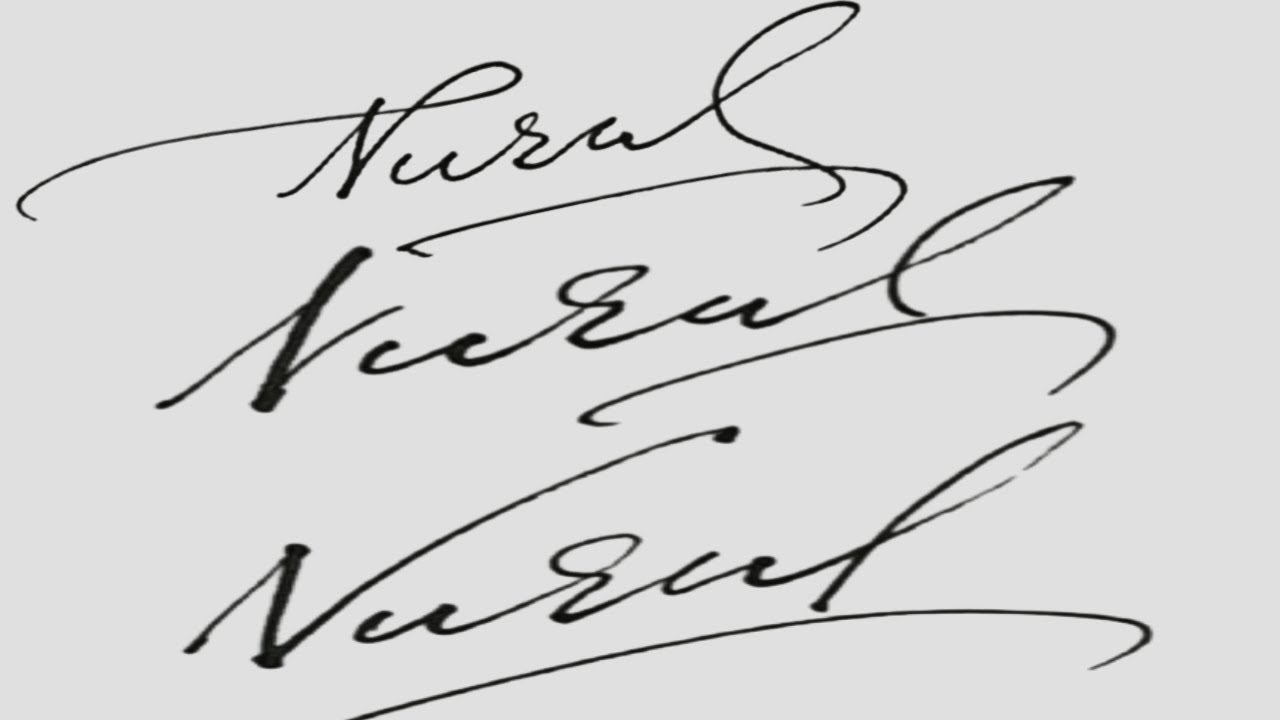 Nurul
Nurul
Nurul